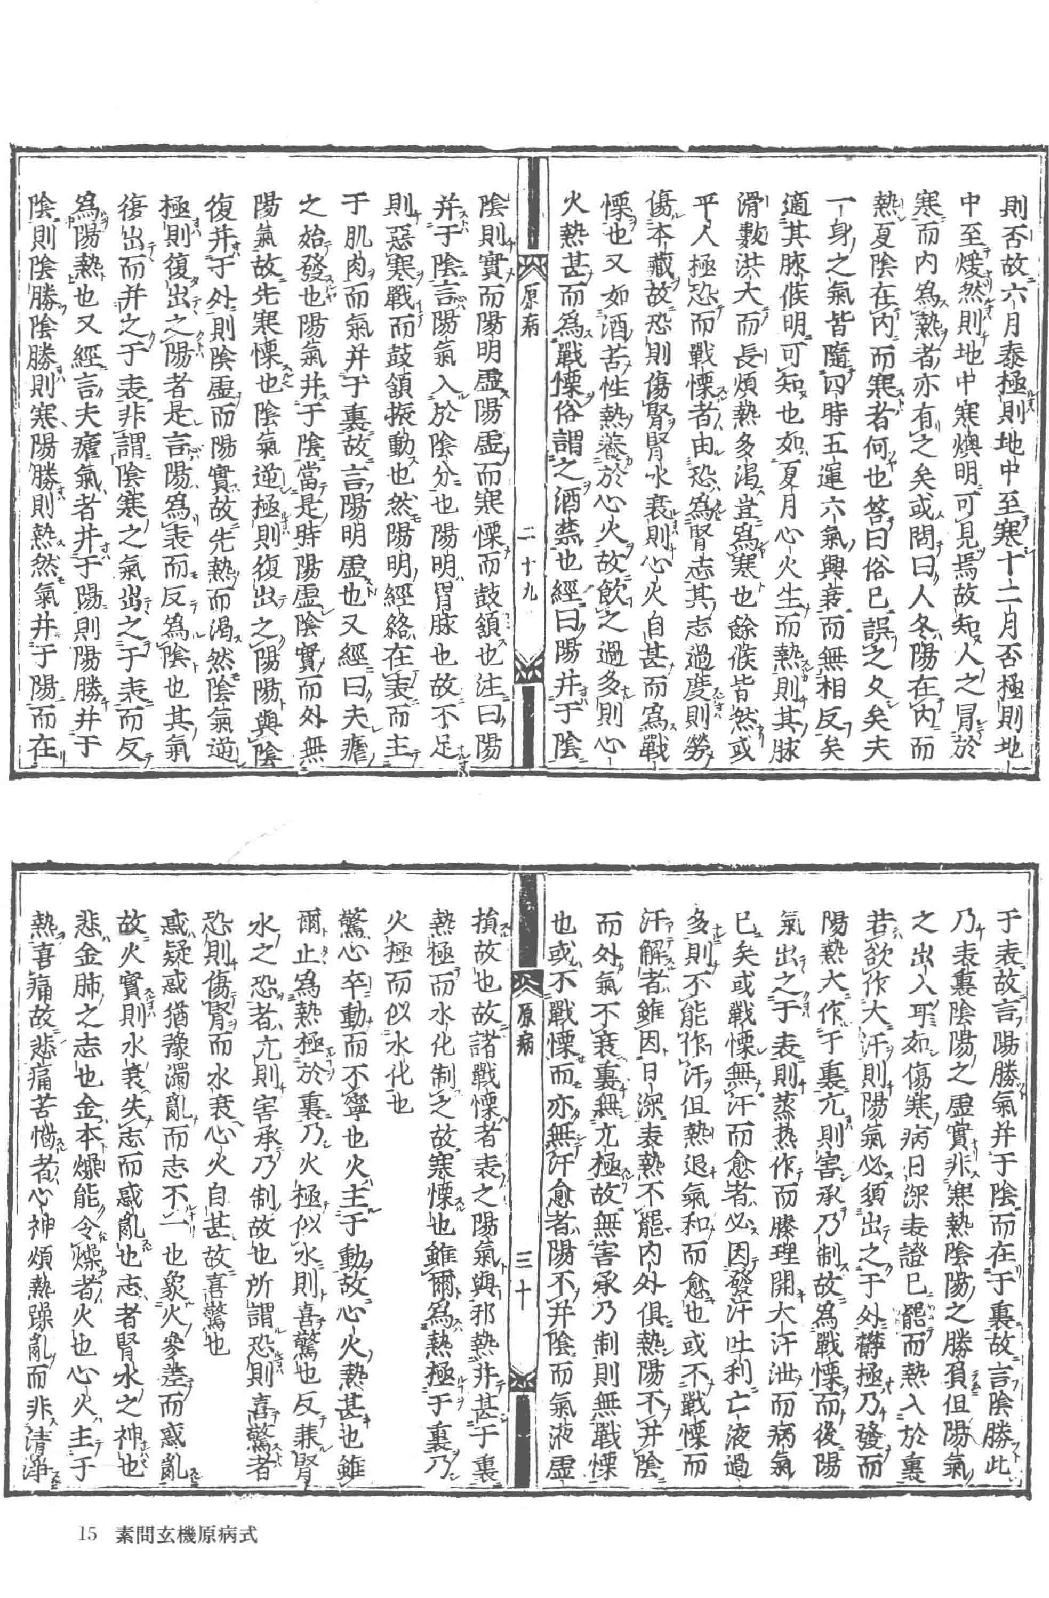 則否故六月泰極則地中至寒十二月否極則地
中至煖然則地中寒燠明可見焉故知人之冒於
寒而內為熱者亦有之矣或問曰人冬陽在內而
熱夏陰在內而寒者何也答曰俗已誤之久矣夫
一身之氣皆隨四時五運六氣興衰而無相反矣
適其脉候明可知也如夏月心火生而熱則其脉
滑數洪大而長煩熱多渴豈為寒也餘候皆然或
平人極恐而戰慄者由恐為腎志其志過度則勞
傷本藏故恐則傷腎腎水衰則心火自甚而為戰
慄也又如酒苦性熱養於心火故飲之過多則心
火熱甚而為戰慄俗謂之酒禁也經曰陽并于陰
原病
二十九
陰則實而陽明虛陽虛而寒慄而鼓頷也注曰陽
并于陰言陽氣入於陰分也陽明胃脉也故不足
則惡寒戰而鼓頷振動也然陽明經絡在表而主
于肌肉而氣并于裏故言陽明虛也又經曰夫瘧
之始發也陽氣并于陰當是時陽虛陰實而外無
陽氣故先寒慄也陰氣逆極則復出之陽陽與陰
復并于外則陰虛而陽實故先熱而渴然陰氣逆
極則復出之陽者是言陽為表而反為陰也其氣
復出而并之于表非謂陰寒之氣出之于表而反
為陽熱也又經言夫瘧氣者并于陽則陽勝并于
陰則陰勝陰勝則寒陽勝則熱然氣并于陽而在
于表故言陽勝氣并于陰而在于裏故言陰勝此
乃表裏陰陽之虛實非寒熱陰陽之勝負但陽氣
之出入耳如傷寒病日深表證已罷而熱入於裏
若欲作大汗則陽氣必須出之于外欝極乃發而
陽熱大作于裏亢則害承乃制故為戰慄而後陽
氣出之于表則蒸熱作而腠理開大汗泄而病氣
已矣或戰慄無汗而愈者必因發汗吐利亡液過
多則不能作汗但熱退氣和而愈也或不戰慄而
汗解者雖因日深表熱不罷內外俱熱陽不并陰
而外氣不衰裏無亢極故無害承乃制則無戰慄
也或不戰慄而亦無汗愈者陽不并陰而氣液虛
原病
三十
損故也故諸戰慄者表之陽氣與邪熱并甚于裏
熱極而水化制之故寒慄也雖爾為熱極于裏乃
火極而似水化也
驚心卒動而不寧也火主于動故心火熱甚也雖
爾止為熱極於裏乃火極似水則喜驚也反兼腎
水之恐者亢則害承乃制故也所謂恐則喜驚者
恐則傷腎而水衰心火自甚故喜驚也
惑疑惑猶豫濁亂而志不一也象火參差而惑亂
故火實則水衰失志而惑亂也志者腎水之神也
悲金肺之志也金本燥能令燥者火也心火主于
熱喜痛故悲痛苦惱者心神煩熱躁亂而非清淨
15 素問玄機原病式